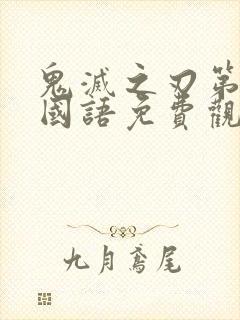 鬼滅之刃第
國語免費觀
九月鳶尾